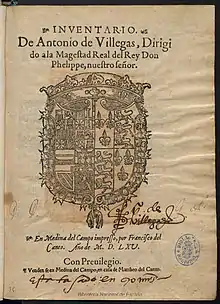 INVENTARIO.
De Antonio de Villegas, Dirigi
do a la Magestad Real del Rey Don
Phelippe, nuestro señor.
de
Villegas
En Medina del Campo impresso, por Francisco del
Canto. Año de M. D. LXV.
Con Preuilegio.
Venden se en Medina del Campo, en casa de Matheo del Canto.
Esta tasado en
Biblioteca Nacional de España